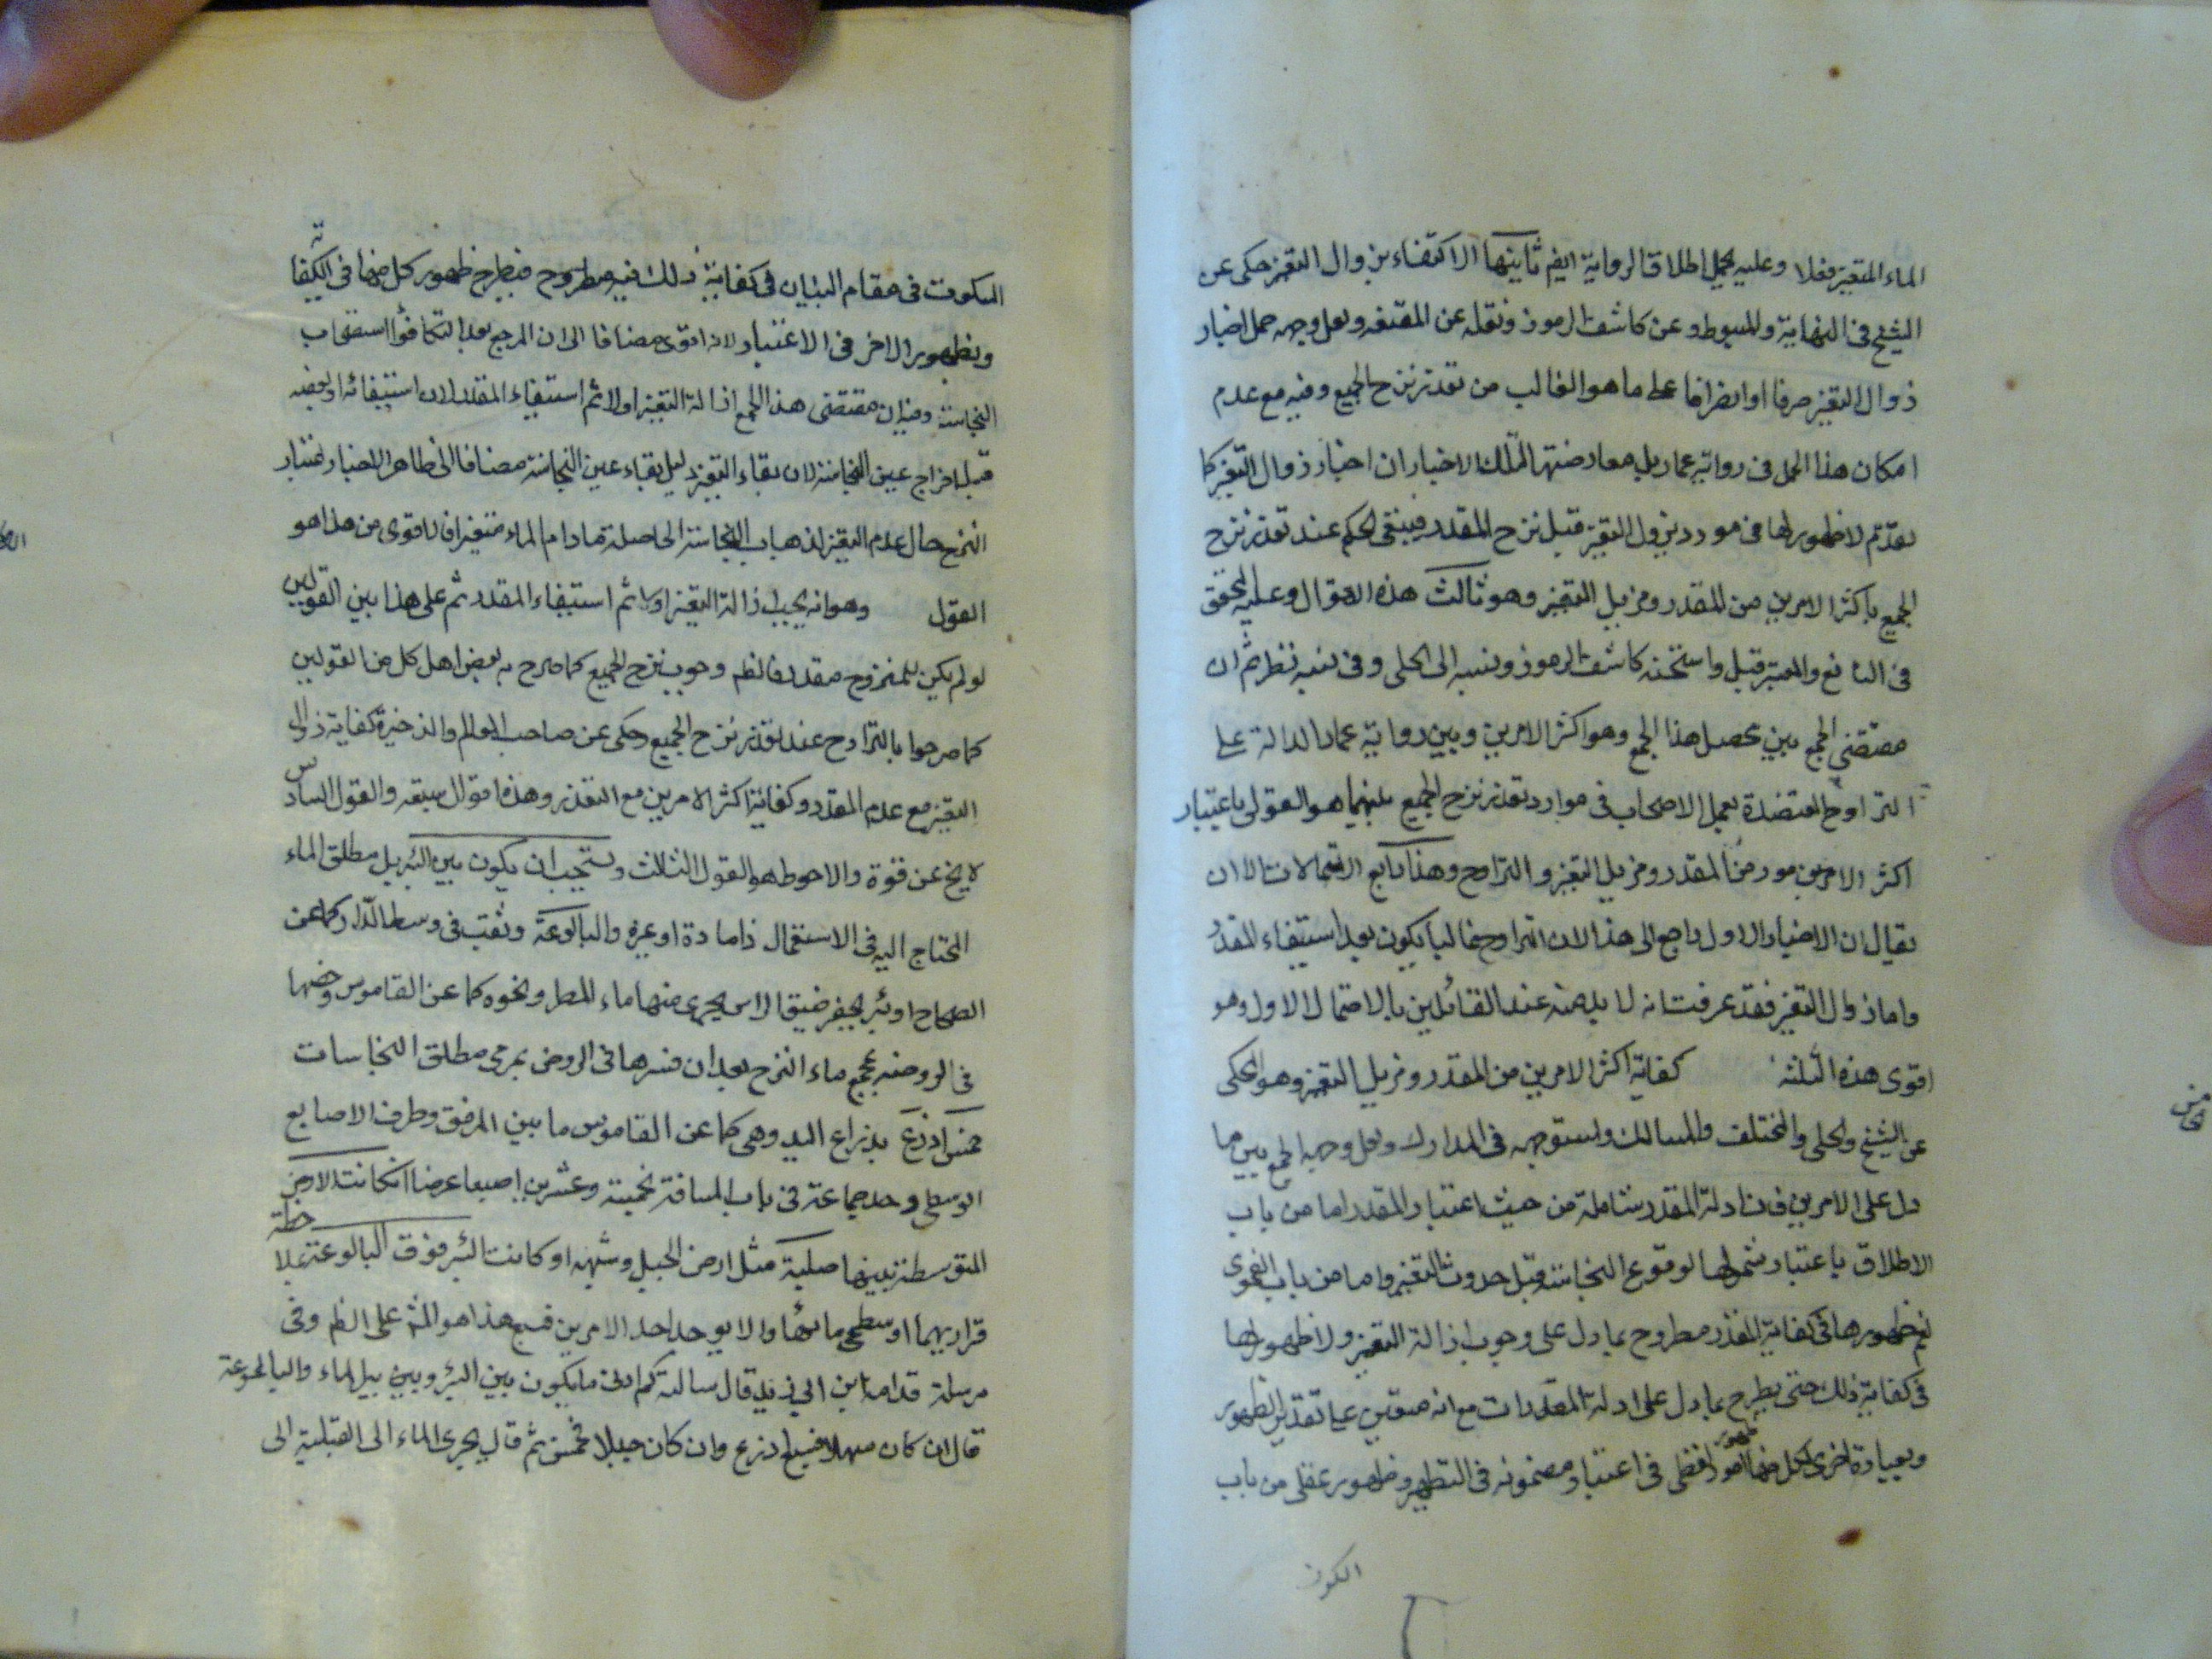 الماء المتغير فعلا وعليه يحمل اطلاق الرواية ايضم ثانيتها الاكتفاء بزوال التغير حكى عن
الشيخ فى النهاية والمبسوط وعن كاشف الرموز ونقله عن المقنعه ولعل وجهه حمل اخبار
زوال التغير صرفا او انصرافا على ما هو الغالب من تعذر نزح الجميع وفيه مع عدم
امكان هذا الحمل فى رواية عمار بل معارضتها لتلك الاخبار ان اخبار زوال التغير كما
تقدم لا ظهور لها فى مورد يزول التغير قبل نزح المقدر فيبقى الحكم عند تعذر نزح
الجميع باكثر الامرين من المقدر ومزيل التغير وهو ثالث هذه الاقوال وعليه المحقق
فى النافع والمعتبر قيل واستحسنه كاشف الرموز ونسبه الى الحلى وفى نسبه نظر ثم ان
مقتضى الجمع بين محصل هذا الجمع وهو اكثر الامرين وبين رواية عمار الدالة على
التراوح المعتضدة بعمل الاصحاب فى موارد تعذر نزح الجميع هو القول باعتبار
اكثر الامرين من المقدر ومزيل التغير والتراوح وهذا رابع الاحتمالات الا ان
يقال ان الاختيار الاول راجع الى هذا لان التراوح غالبا يكون بعد استيفاء المقدر
واما زوال التغير فقد عرفت انه لا بد منه عند القائلين بالاحتمال الاول وهو
اقوى هذه الثلثة كفاية اكثر الامرين من المقدر ومزيل التغير وهو المحكى
عن الشيخ والحلى والمختلف والمسالك واستوجهه فى المدارك ولعل وجهه الجمع بين ما
دل على الامرين فان ادلة المقدر شاملة من حيث اعتبار المقدر اما من باب
الاطلاق باعتبار شمولها لوقوع النجاسة قبل حدوث التغير واما من باب الفحوى
نعم ظهورها فى كفاية المقدر مطروح بما دل على وجوب ازالة التغير ولا ظهور لها
فى كفاية ذلك حتى يطرح بما دل على ادلة المقدرات مع انه على تقدير الظهور
وبعبارة اخرى لكل منها ظهور لفظى فى اعتبار مضمونه فى التطهير وظهور عقلى من باب
السكوت
السكوت فى مقام البيان فى كفاية ذلك فيه مطروح فيطرح ظهور كل منها فى الكفاية
وبظهور الاخر فى الاعتبار لانه اقوى مضافا الى ان المرجع بعد التكافؤ استصحاب
النجاسة وفيه ان مقتضى هذا الجمع ازالة التغير اولا ثم استيفاء المقدر لان استيفائه او بعضه
قبل اخراج عين النجاسة لان بقاء التغير دليل بقاء عين النجاسة مضافا الى ظاهر الاخبار اعتبار
النزح حال عدم التغير لذهاب النجاسة الحاصلة ما دام الماء متغيرا فالاقوى من هذا هو
القول وهو انه يجب ازالة التغير اولا ثم استيفاء المقدر ثم على هذا بين القولين
لو لم يكن للمنزوح مقدر فالظم وجوب نزح الجميع كما صرح به بعض اهل كل من القولين
كما صرحوا بالتراوح عند تعذر نزح الجميع وحكى عن صاحب المعالم والذخيرة كفاية زوال
التغير مع عدم المقدر وكفاية اكثر الامرين مع التعذر وهذه اقوال سبعه والقول السادس
لا يخ عن قوة والاحوط هو القول الثالث ويستحب ان يكون بين البئر بل مطلق الماء
المحتاج اليه فى الاستعمال ذا مادة او غيره والبالوعة وثقب فى وسط الدار كما عن
الصحاح او بئر يحفر ضيق الراس يجرى منها ماء المطر ونحوه كما عن القاموس وخصها
فى الروضه بمجمع ماء النزح بعد ان فسرها فى الروض بمرمى مطلق النجاسات
خمس اذرع بذراع اليد وهى كما عن القاموس ما بين المرفق وطرف الاصابع
الوسطى وحد جماعة فى باب المسافة بخمسة وعشرين اصبعا عرضا ان كانت الارض
المتوسطة بينهما صلبة مثل ارض الجبل وشبهه او كانت البئر فوق البالوعة بملاحظة
قراريهما او سطحى مائهما والا يوجد احد الامرين فسبع هذا هو المشهم على الظم وفى
مرسلة قدامة ابن ابى زيد قال سالته كم ادنى ما يكون بين البئر وبين بيل الماء والبالوعة
قال ان كان سهلا فسبع اذرع وان كان جبلا فخمس ثم قال يجرى الماء الى القبلة الى